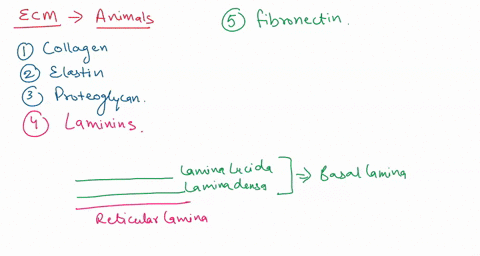 ECM → Animals
① Collagen
② Elastin
③ Proteoglycan.
④ Laminins.
⑤ fibronectin.
Lamina Lucida
Lamina densa
⇒ Basal Lamina
Reticular Lamina